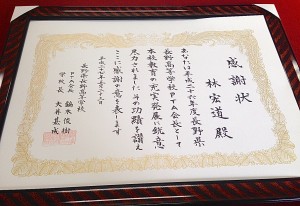 感謝状
林 宏道 殿
あなたは平成二十六年度長野県
長野高等学校PTA会長として
本校教育の充実発展に鋭意
尽力されましたその功績を讃え
ここに感謝の意を表します
平成二十七年
長野県長野高等学校
PTA会長 俊樹
学校長 大井基成